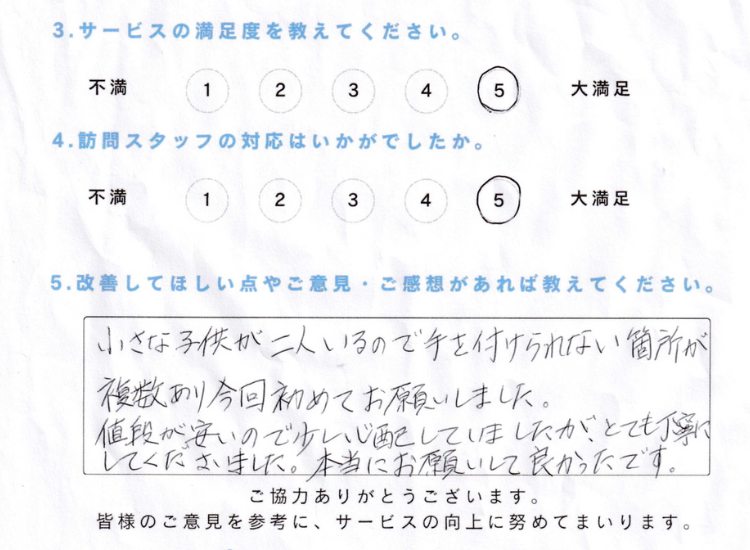 3.サービスの満足度を教えてください。
不満 1 2 3 4 5 大満足
4.訪問スタッフの対応はいかがでしたか。
不満 1 2 3 4 5 大満足
5.改善してほしい点やご意見・ご感想があれば教えてください。
小さな子供が二人いるので手を付けられない箇所が
複数あり今回初めてお願いしました。
値段が安いので少し心配していましたが、とても丁寧に
してくださいました。本当にお願いして良かったです。
ご協力ありがとうございます。
皆様のご意見を参考に、サービスの向上に努めてまいります。